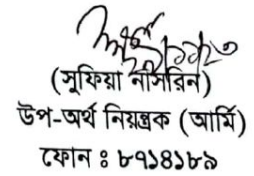 (সুফিয়া নাসরিন)
উপ-অর্থ নিয়ন্ত্রক (আর্মি)
ফোন ঃ ৮৭১৪১৮৯